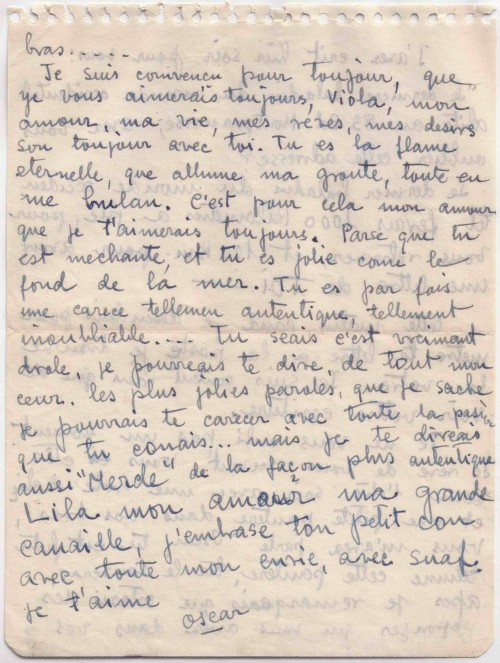 bras......
Je suis convencu pour toujour, que
je vous aimerais toujours, Viola, mon
amour, ma vie, mes reves, mes desirs
son toujour avec toi. Tu es la flame
eternelle, que allume ma groute, toute en
me brulan. C'est pour cela mon amour
que je t'aimerais toujours. Parse que tu
est mechante, et tu es jolie come le
fond de la mer. Tu es par fois
une carece tellemen autentique, tellement
inoubliable.... Tu seais c'est vraimant
drole, je pourrais te dire, de tout mon
ceur. les plus jolies paroles, que je sache
je pourrais te carecer avec toute la pasion
que tu conais... mais je te direais
aussi "Merde" de la façon plus autentique
Lila mon amour ma grande
canaille, j'embrase ton petit con
avec toute mon envie, avec suaf
je t'aime
oscar